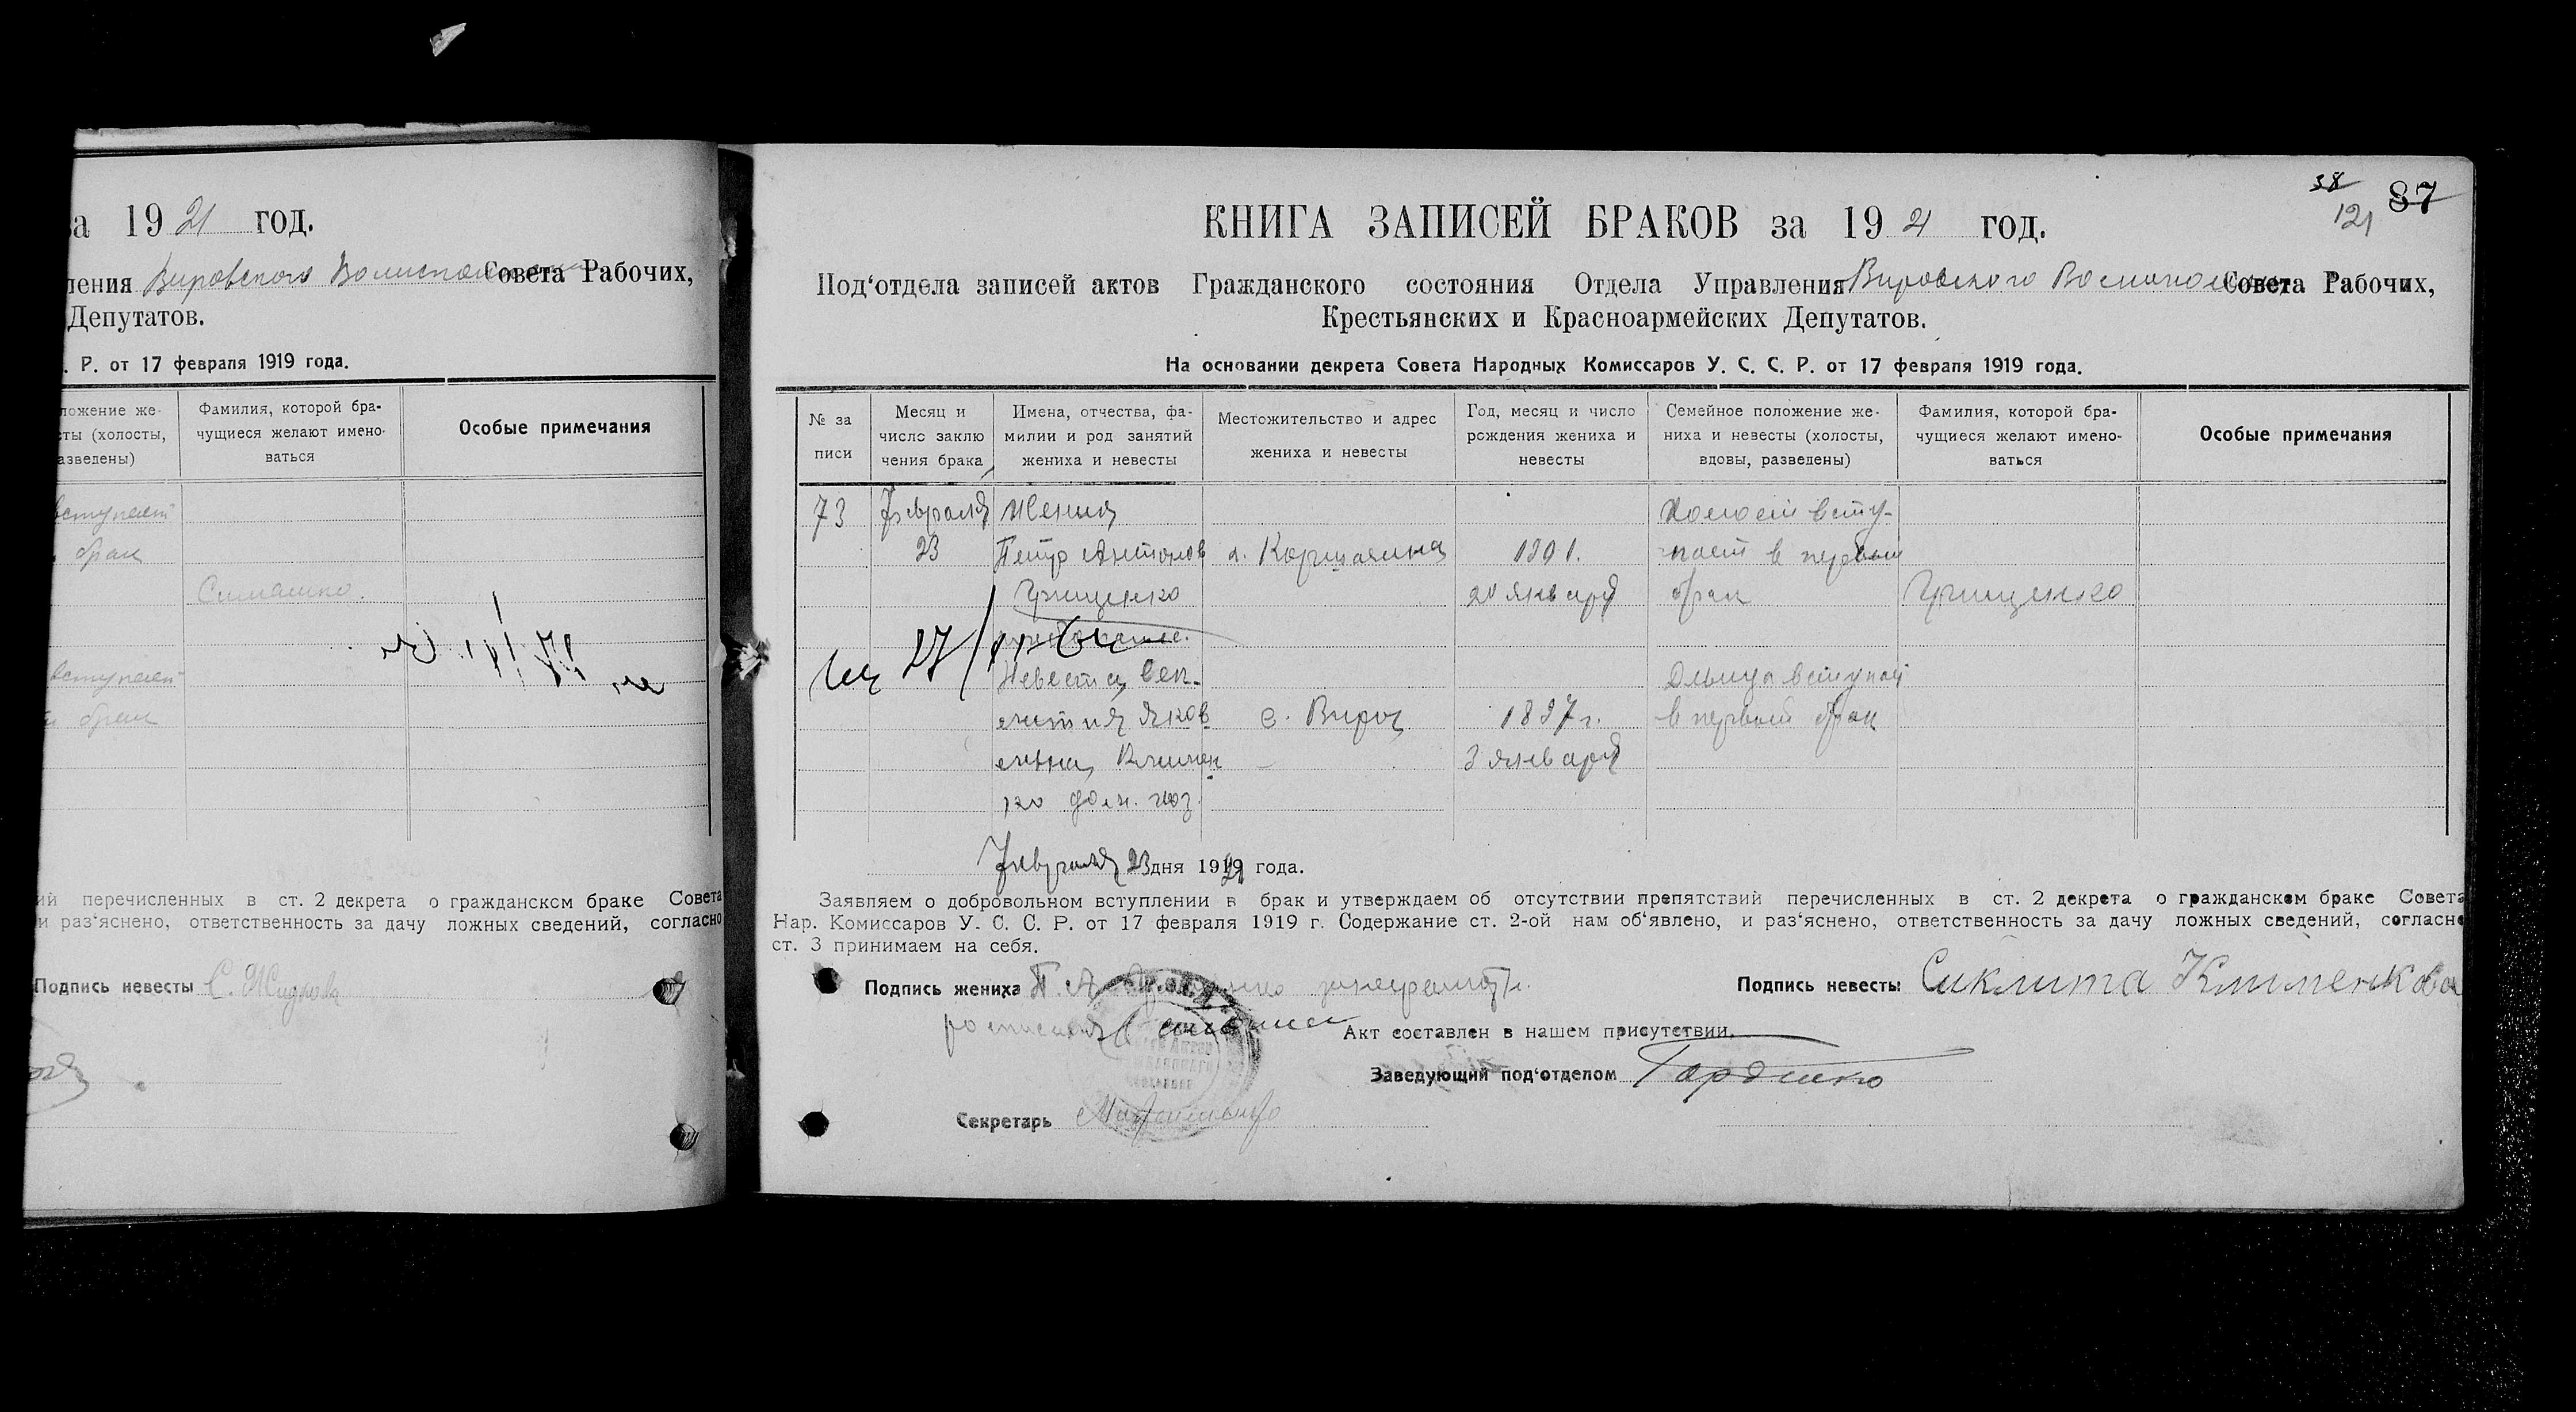 за 1921 год.
ления Вировского Волисполкома Совета Рабочих,
Депутатов.
. Р. от 17 февраля 1919 года.
ложение же-
сты (холосты,
азведены)
Фамилия, которой бра-
чущиеся желают имено-
ваться
Особые примечания
вступает
брак
Симашко.
вступает
брак
ий перечисленных в ст. 2 декрета о гражданском браке Совета
и раз‘яснено, ответственность за дачу ложных сведений, согласно
Подпись невесты С. Жидкова
38
121
87
КНИГА ЗАПИСЕЙ БРАКОВ за 1921 год.
Под‘отдела записей актов Гражданского состояния Отдела Управления Вировского Волисполкома Совета Рабочих,
Крестьянских и Красноармейских Депутатов.
На основании декрета Совета Народных Комиссаров У. С. С. Р. от 17 февраля 1919 года.
№ за
писи
Месяц и
число заклю
чения брака
Имена, отчества, фа-
милии и род занятий
жениха и невесты
Местожительство и адрес
жениха и невесты
Год, месяц и число
рождения жениха и
невесты
Семейное положение же-
ниха и невесты (холосты,
вдовы, разведены)
Фамилия, которой бра-
чущиеся желают имено-
ваться
Особые примечания
73 Февраля Жених Холост всту-
23 Петр Антонов 1901. пает в первый
Грищенко 20 января брак Грищенко
27/
Невеста Сек- Девица вступает
летия Яков с. Вира 1897 г. в первый брак
левна Климен 3 января
ко дом. хоз.
Февраля 23 дня 1921 года.
Заявляем о добровольном вступлении в брак и утверждаем об отсутствии препятствий перечисленных в ст. 2 декрета о гражданском браке Совета
Нар. Комиссаров У. С. С. Р. от 17 февраля 1919 г. Содержание ст. 2-ой нам об‘явлено, и раз‘яснено, ответственность за дачу ложных сведений, согласно
ст. 3 принимаем на себя.
Подпись жениха П. А.
Подпись невесты Сиклита Клименкова
Акт составлен в нашем присутствии.
Заведующий под‘отделом Гордиенко
Секретарь